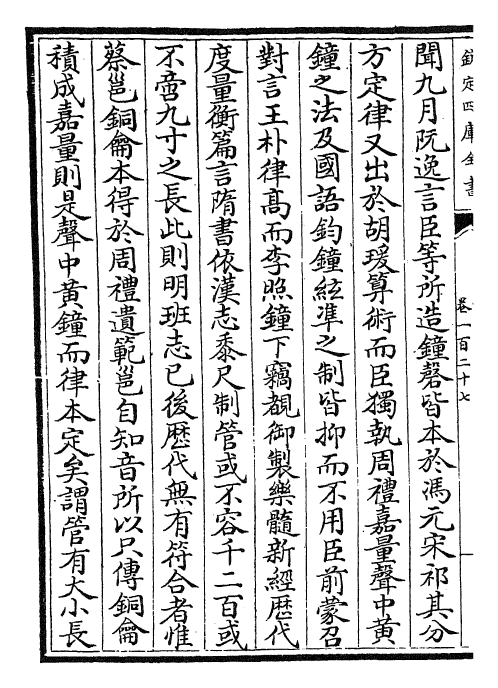 欽定四庫全書
卷一百二十七
聞九月阮逸言臣等所造鐘磬皆本於馮元宋祁其分
方定律又出於胡瑗算術而臣獨執周禮嘉量聲中黄
鐘之法及國語鈞鐘絃凖之制皆抑而不用臣前蒙召
對言王朴律髙而李照鐘下竊覩御製樂髓新經歴代
度量衡篇言隋書依漢志黍尺制管或不容千二百或
不啻九寸之長此則明班志已後歴代無有符合者惟
蔡邕銅龠本得於周禮遺範邕自知音所以只傳銅龠
積成嘉量則是聲中黄鐘而律本定矣謂管有大小長